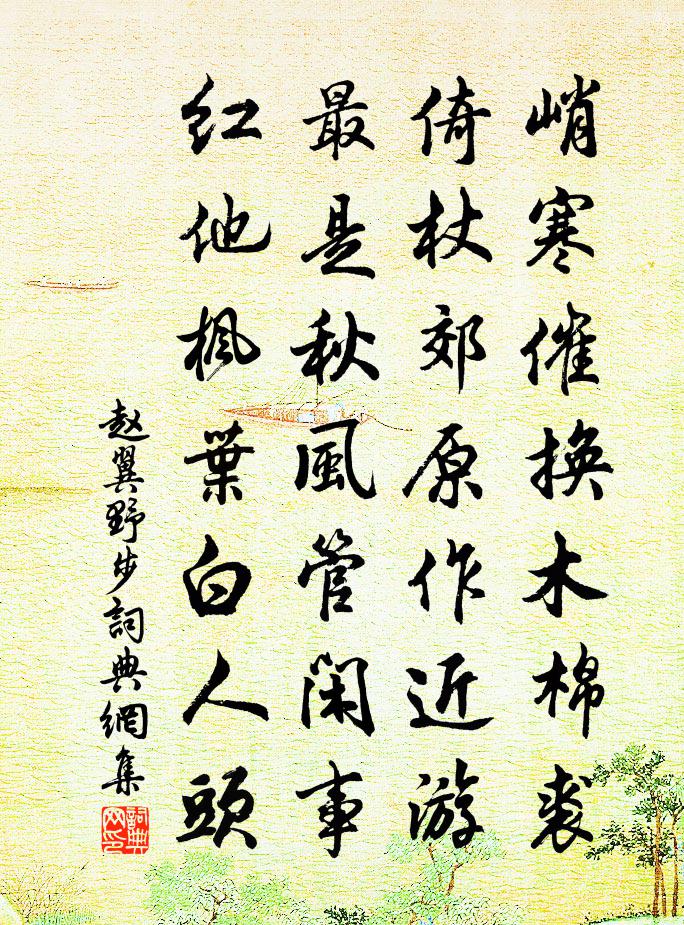 峭寒催換木棉裘
倚杖郊原作近游
最是秋風管閑事
紅他楓葉白人頭
赵翼野步詞典網集
詞典网印